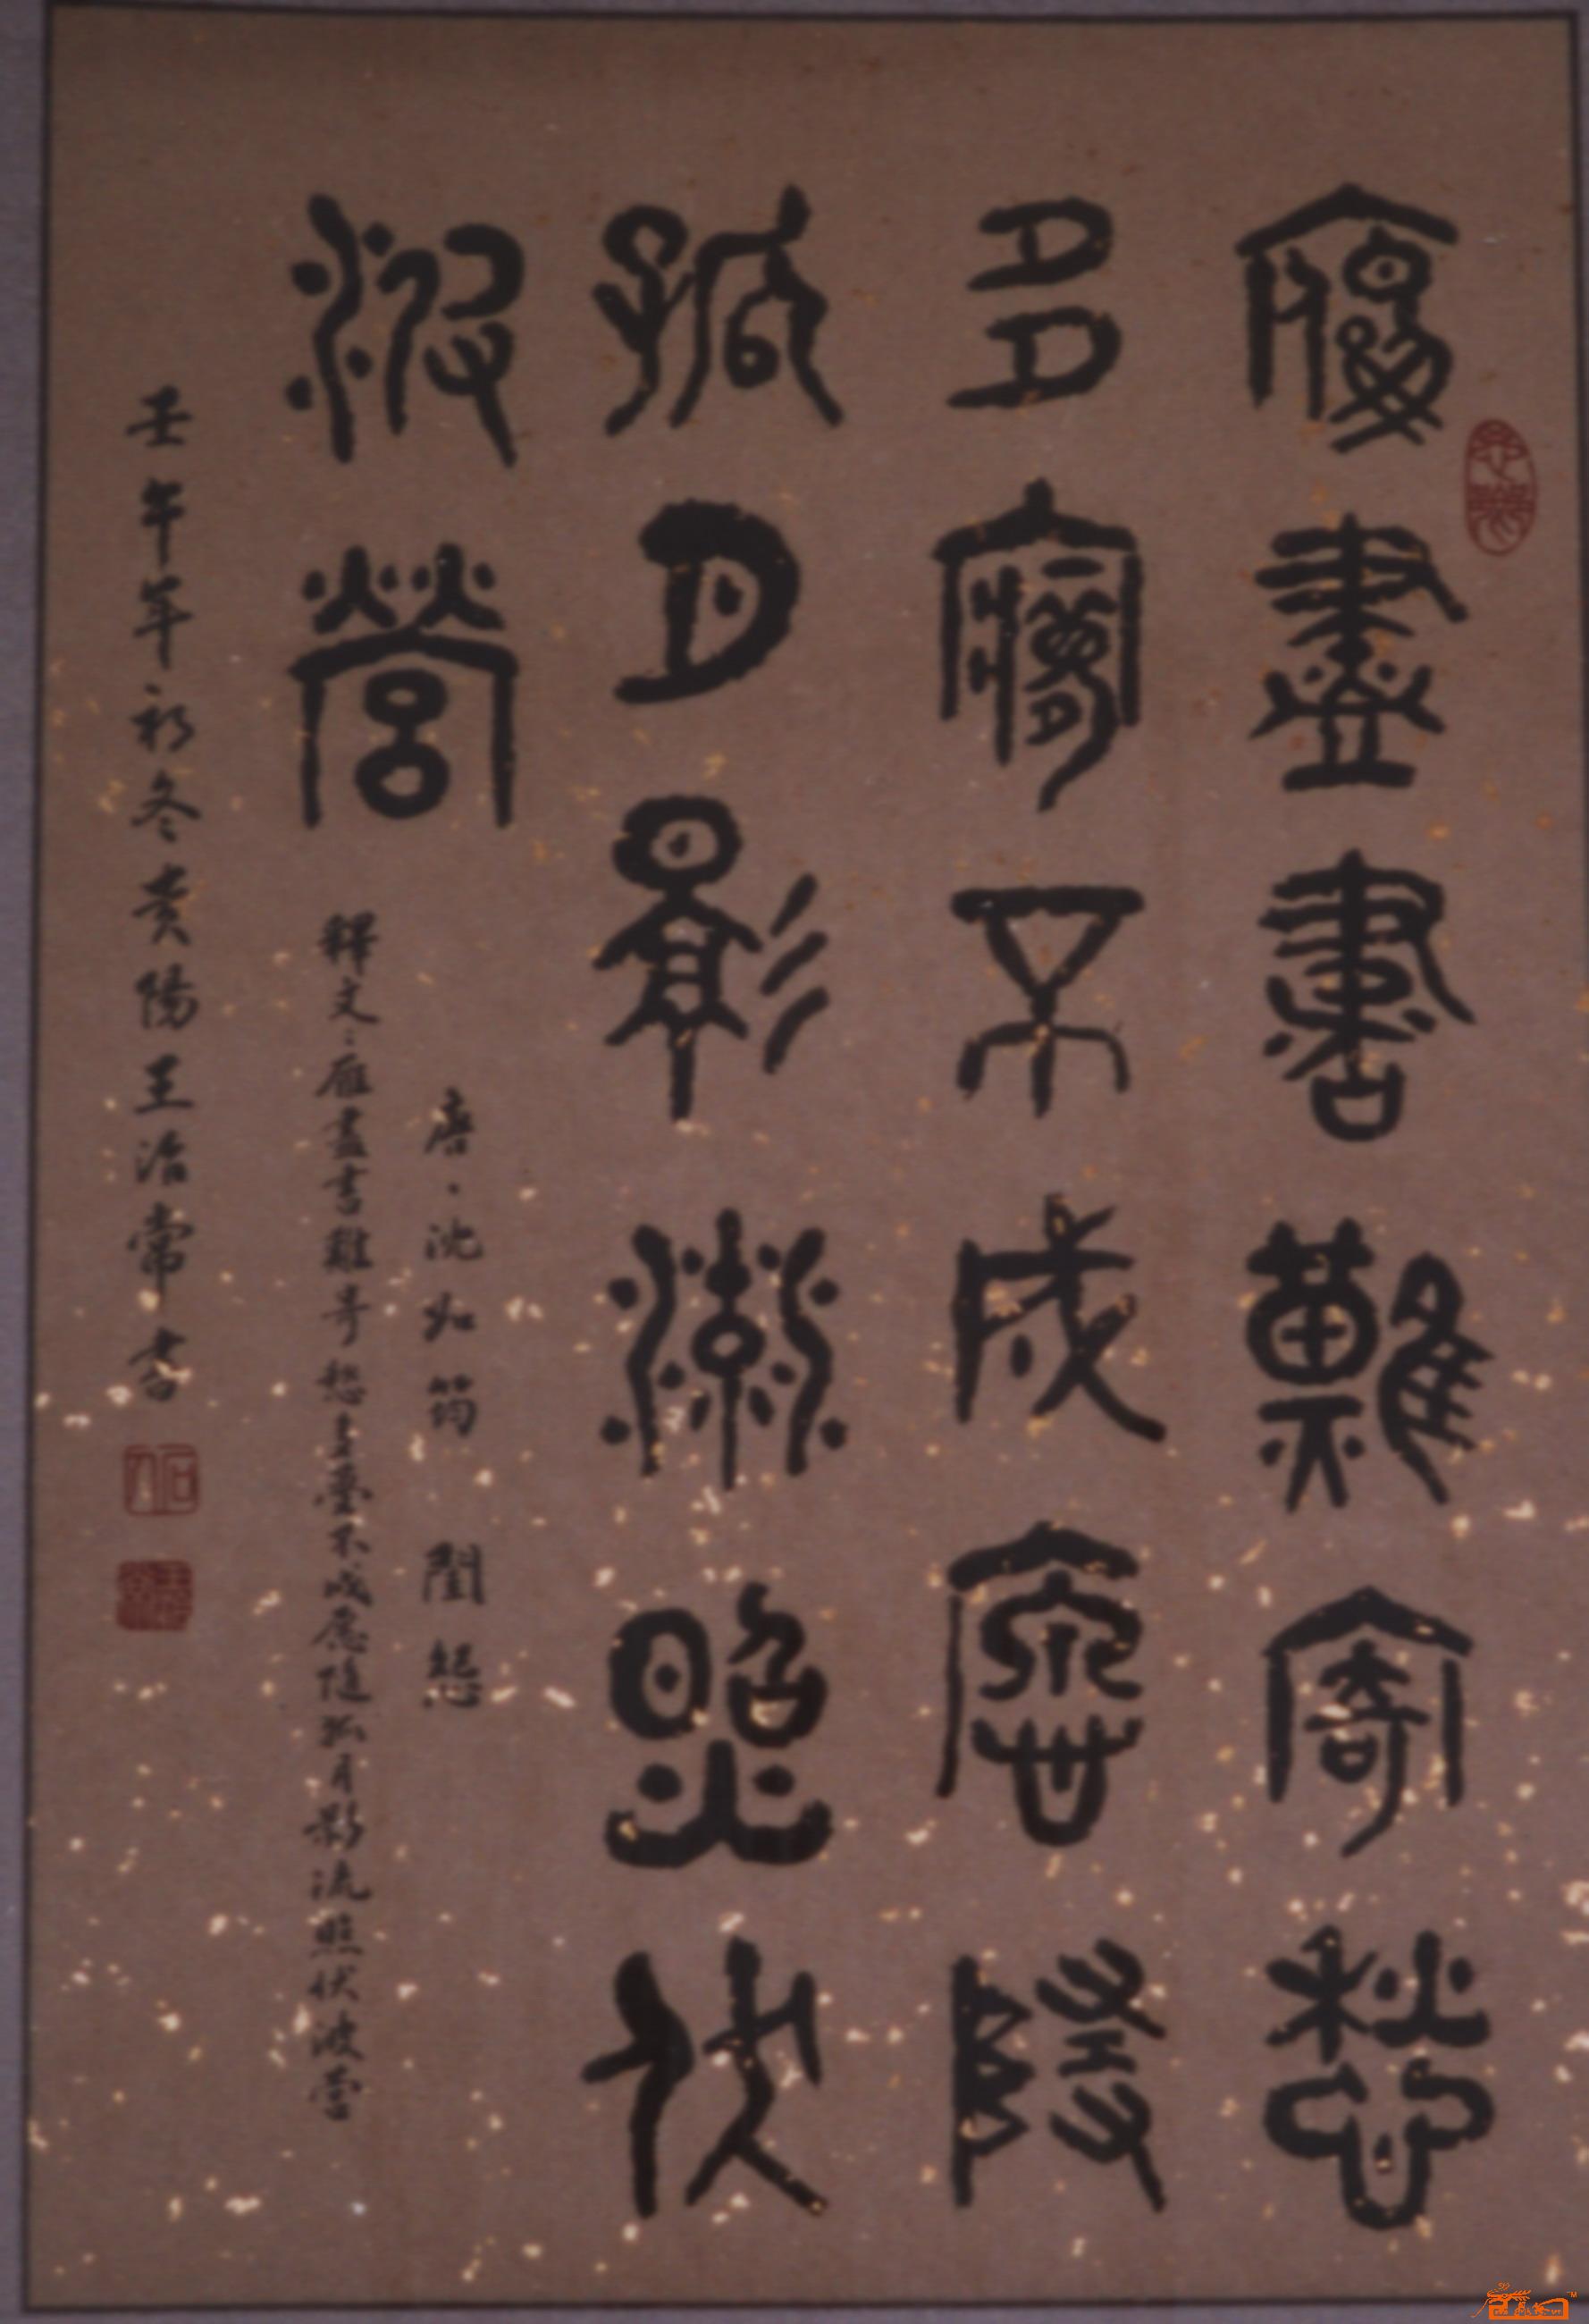 雁盡書難寄愁
多夢不成愿隨
孤月影流照伏
波營
唐、沈如筠 閨怨
释文：雁盡書難寄愁多夢不成愿隨孤月影流照伏波营
壬午年初冬贵陽王治常书